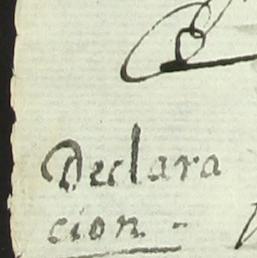 Declara
cion -